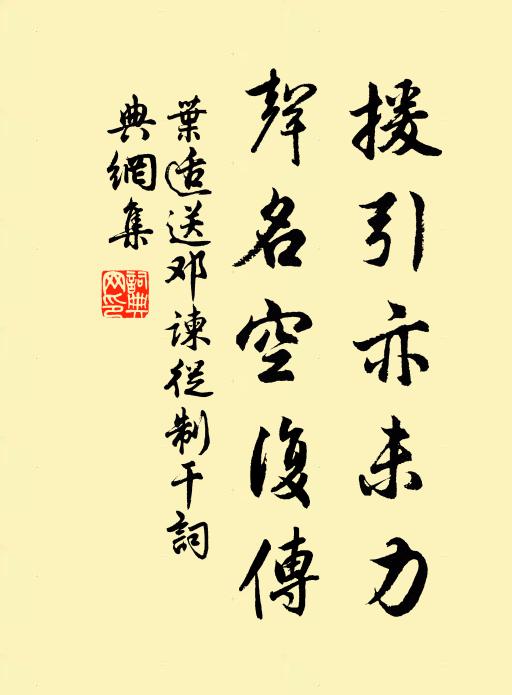 援引亦未力
聲名空復傳
葉适送邓谏從制干詞
典網集
詞典網印